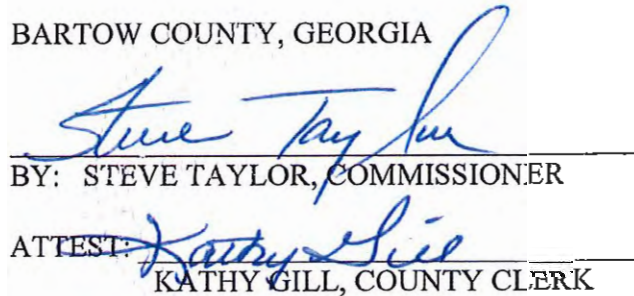 BARTOW COUNTY, GEORGIA
Steve Taylor
BY: STEVE TAYLOR, COMMISSIONER
ATTEST: Kathy Gill
KATHY GILL, COUNTY CLERK